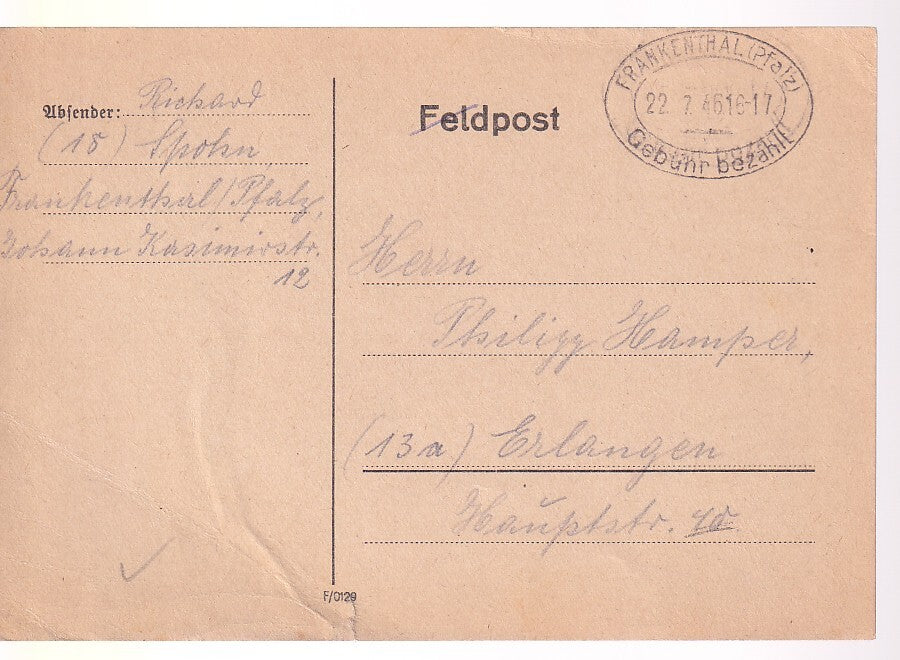 Absender: Richard
(18) Spohn,
Frankenthal/Pfalz,
Johann Kasimirstr.
12
Feldpost
FRANKENTHAL (Pfalz)
22. 7. 46 16-17
Gebühr bezahlt
Herrn
Philipp Hamper,
(13a) Erlangen
Hauptstr.
F/0129